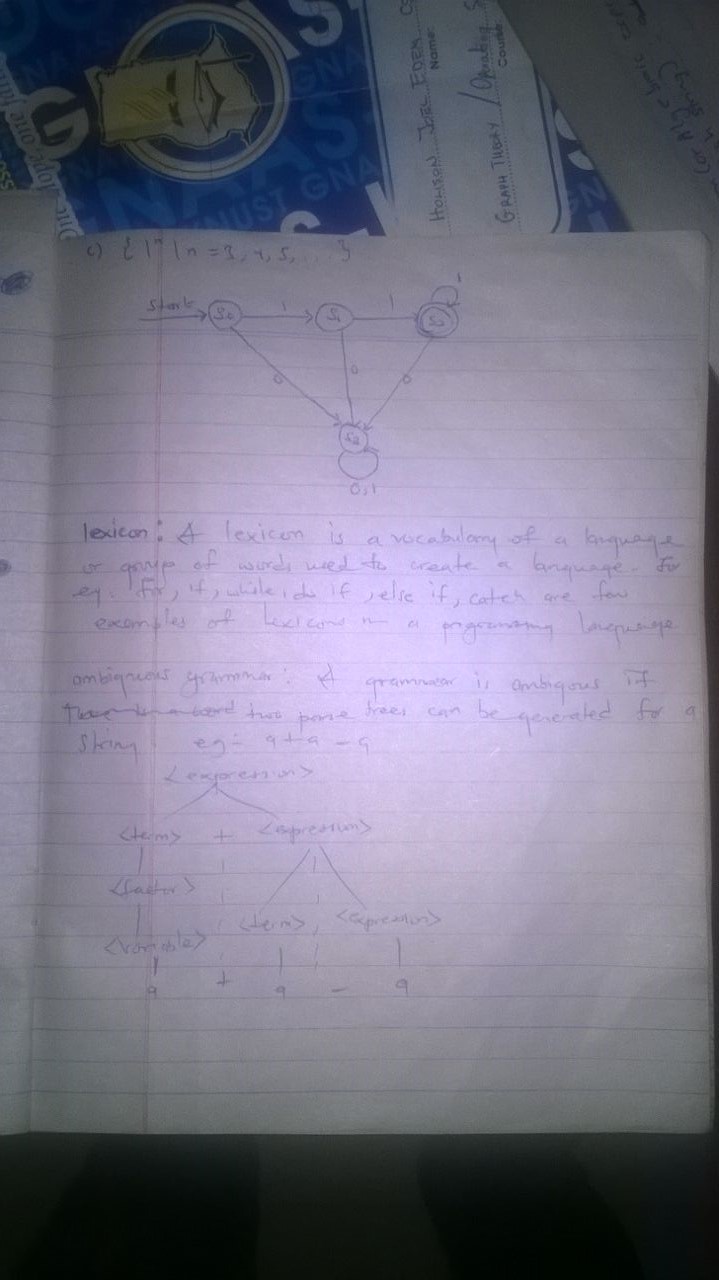 GNAAS
KNUST GNA
HOWSON JOEL EDEM
Name
GRAPH THEORY / Operating S
Course
c) { 1ⁿ | n = 3, 4, 5, ... }
Start S0 1 S1 1 S2 1
0 0 0
S3
0,1
lexicon: A lexicon is a vocabulary of a language
or group of words used to create a language. For
eg. for, if, while, do if, else if, catch are few
examples of lexicons in a programming language
ambiguous grammar: A grammar is ambigous if
two parse trees can be generated for a
string eg:- a + a - a
<expression>
<term> + <expression>
<factor>
<term> <expression>
<variable>
a + a - a